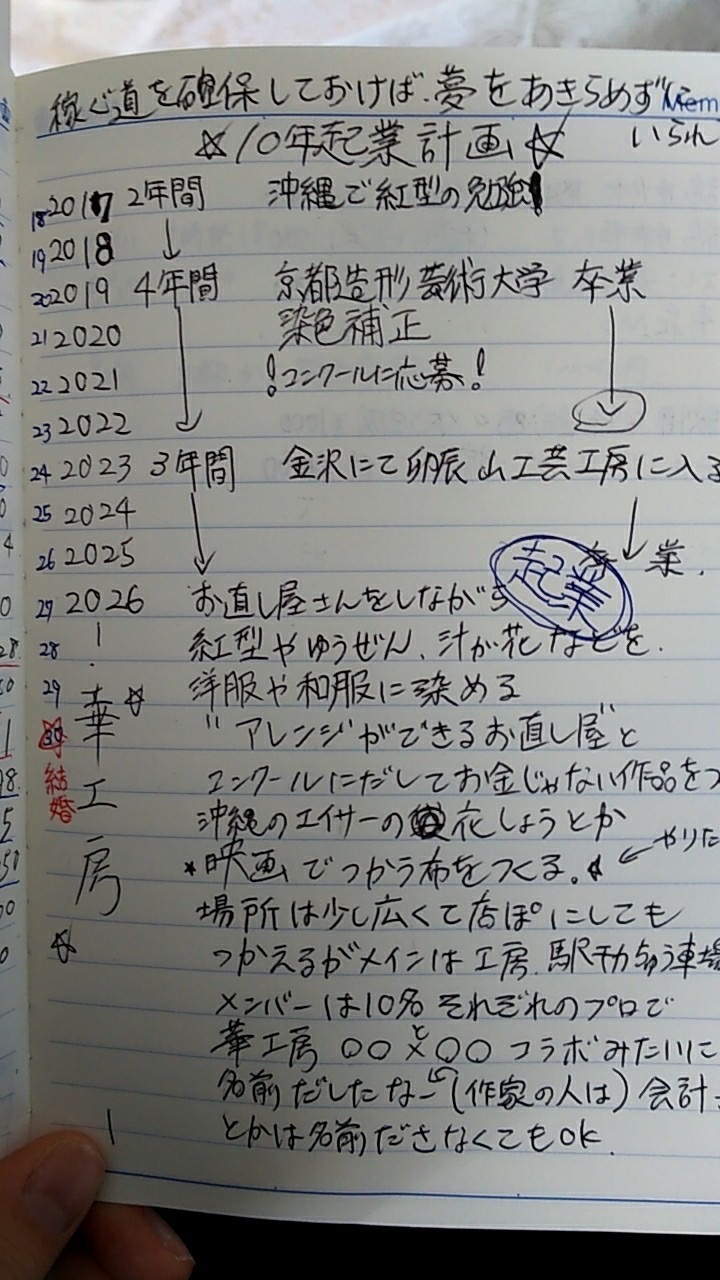 稼ぐ道を確保しておけば、夢をあきらめずに
Mem
いられ
☆10年起業計画☆
18 2017 2年間 沖縄で紅型の勉強!
19 2018
20 2019 4年間 京都造形芸術大学 卒業
21 2020 染色補正
22 2021 !コンクールに応募!
23 2022
24 2023 3年間 金沢にて卯辰山工芸工房に入る
25 2024
26 2025 卒業.
起業
27 2026 お直し屋さんをしながら
28 紅型やゆうぜん、汁が花などを.
29 洋服や和服に染める
30 "アレンジができるお直し屋"と
結婚
☆華工房☆
コンクールにだしてお金じゃない作品をつ
沖縄のエイサーの花しょうとか
*映画でつかう布をつくる。☆ ← やりた
場所は少し広くて店ぽにしても
つかえるがメインは工房.駅チカちゅう車場
メンバーは10名それぞれのプロで
華工房 〇〇×〇〇と コラボみたいに
名前だしたなー(作家の人は)会計
とかは名前ださなくてもOK.